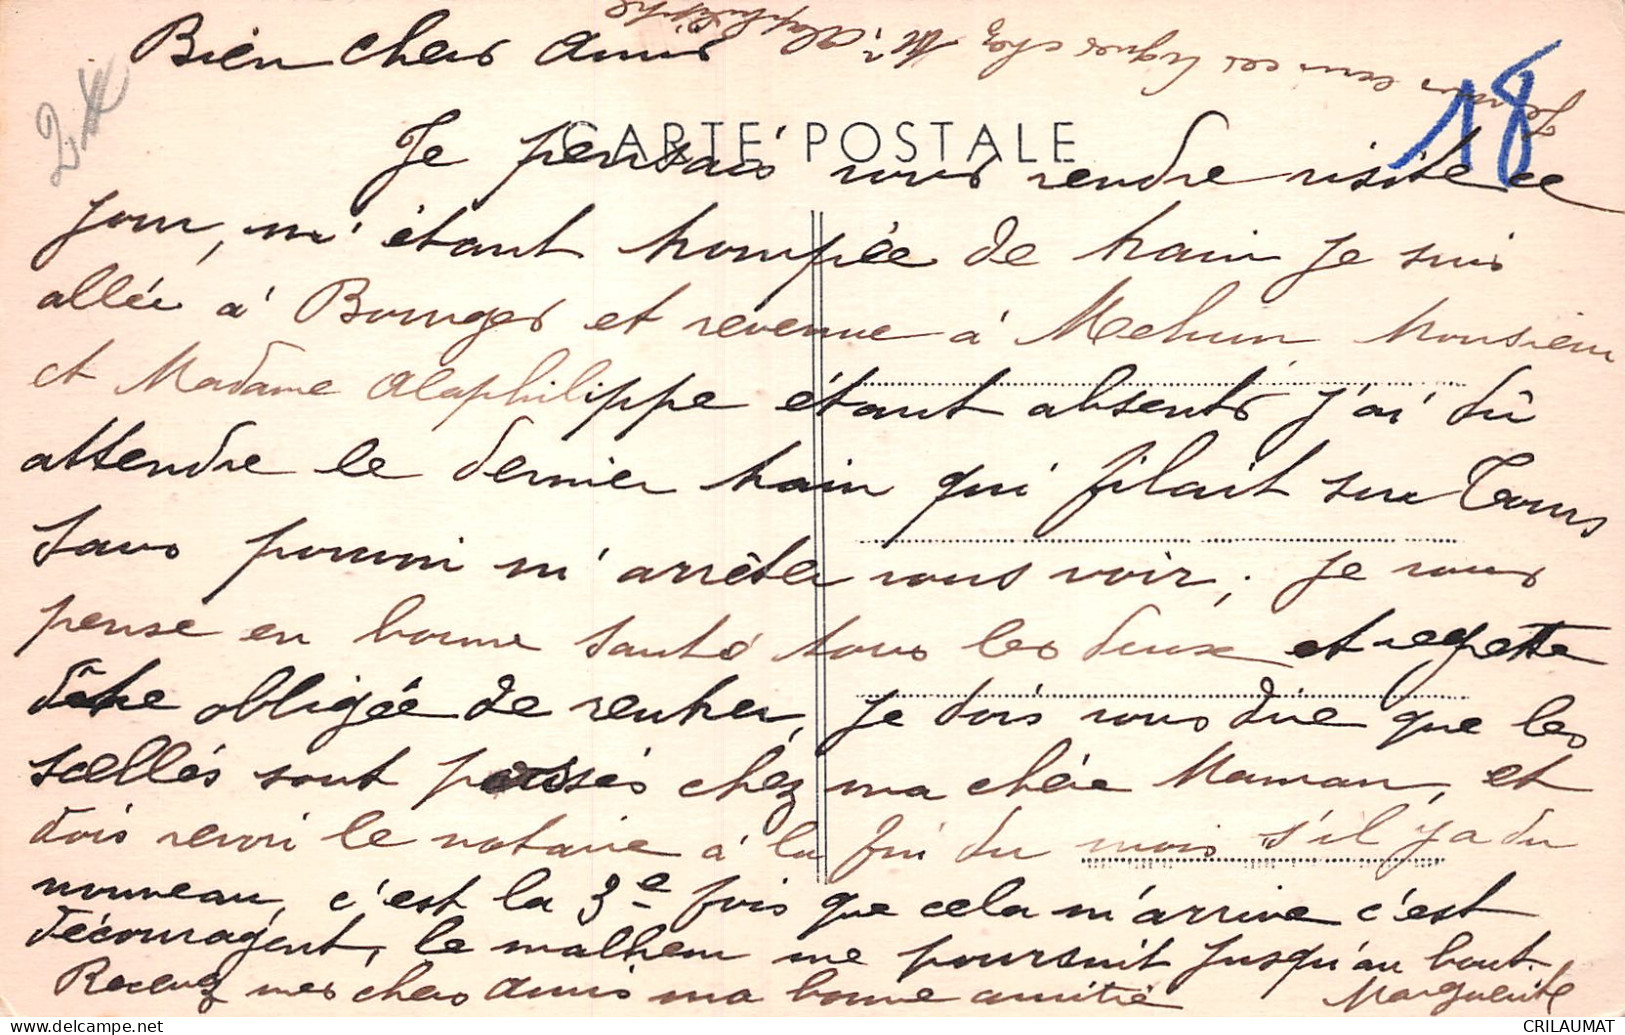 Je vous écris ces lignes chez Mr Alaphilippe
Bien chers amis
2
18
CARTE POSTALE
Je pensais vous rendre visite ce
jour, m'étant trompée de train je suis
allée à Bourges et revenue à Mehun, Monsieur
et Madame Alaphilippe étant absents j'ai dû
attendre le dernier train qui filait sur Tours
sans pouvoir m'arrêter vous voir, je vous
pense en bonne santé tous les deux et regrette
être obligée de rentrer, je dois vous dire que les
scellés sont possés chez ma chère Maman, et
dois revoir le notaire à la fin du mois s'il y a du
nouveau, c'est la 3e fois que cela m'arrive c'est
décourageant, le malheur me poursuit jusqu'au bout.
Recevez mes chers amis ma bonne amitié Marguerite
CRILAUMAT